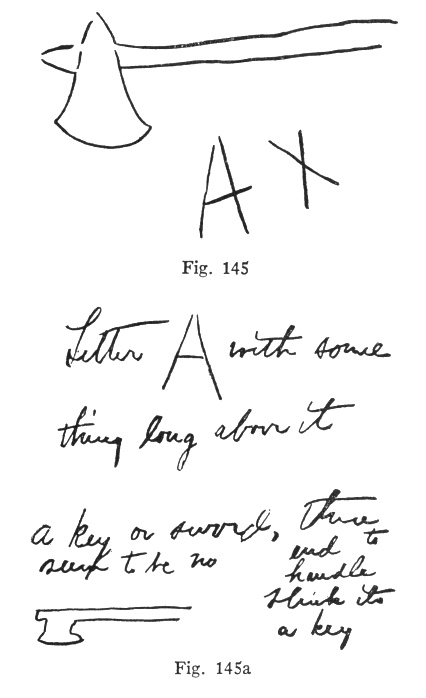 A X
Fig. 145
Letter A with some
thing long above it
a key or sword, there
seem to be no end to
handle
think its
a key
Fig. 145a